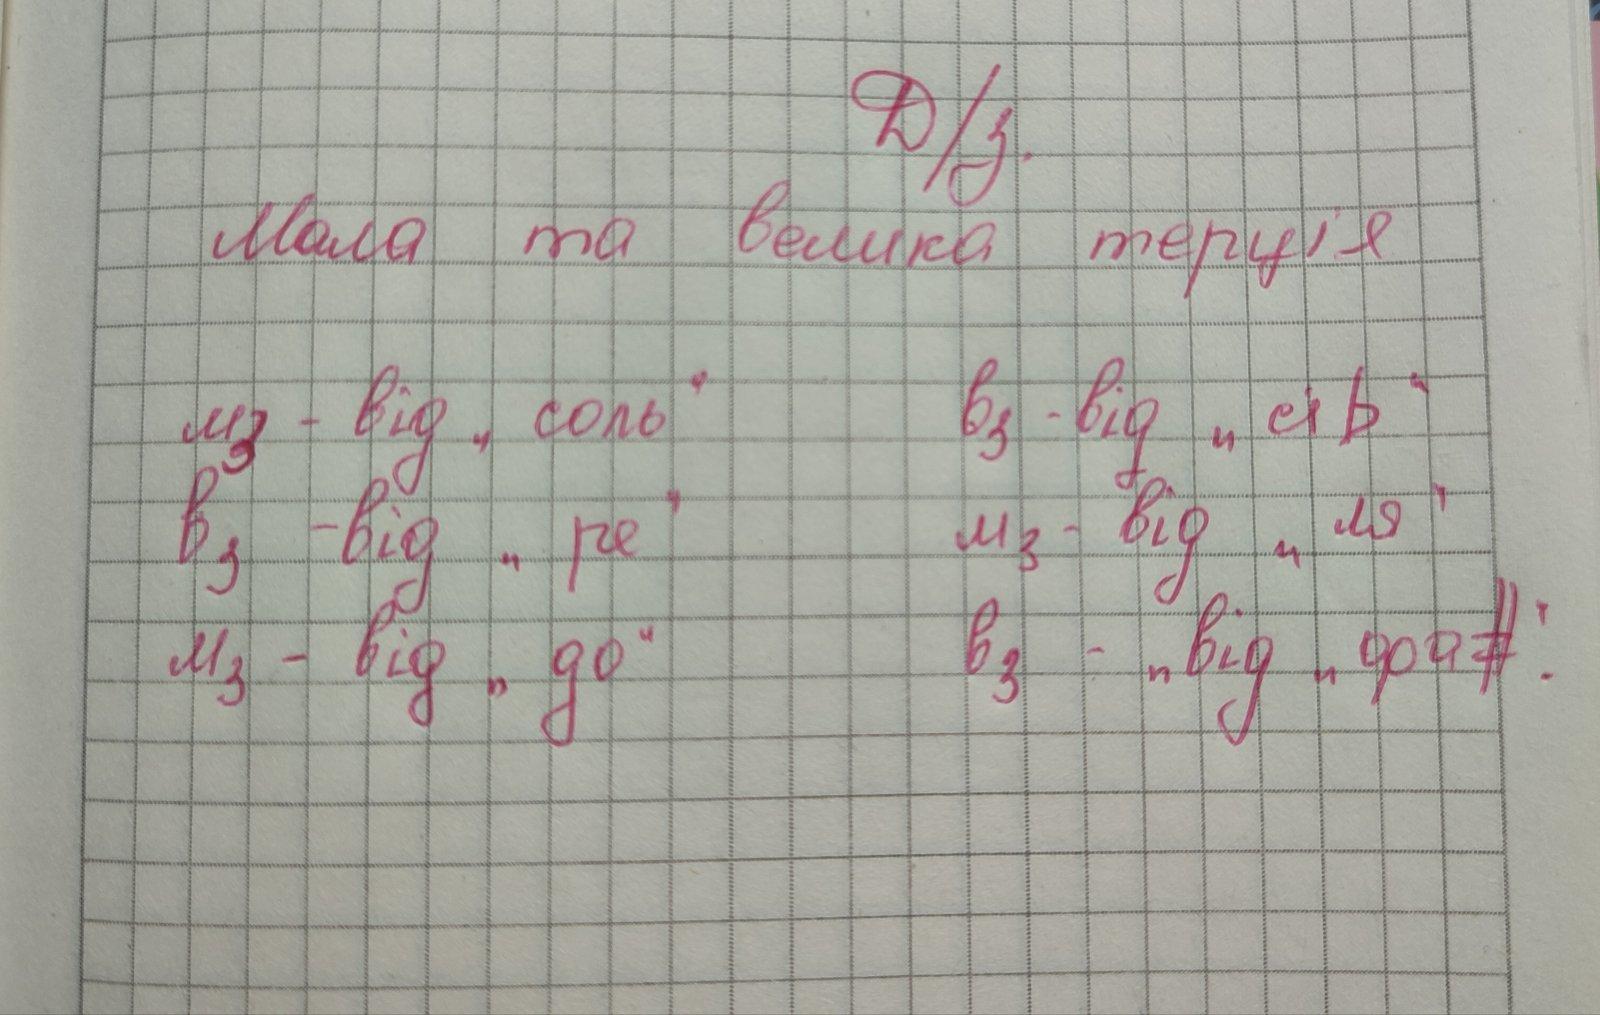 Д/з.
Мала та велика терція
м3 - від „ соль"
в3 - від „ ре"
м3 - від „ до"
в3 - від „ сі b"
м3 - від „ ля"
в3 - „ від „ фа #".